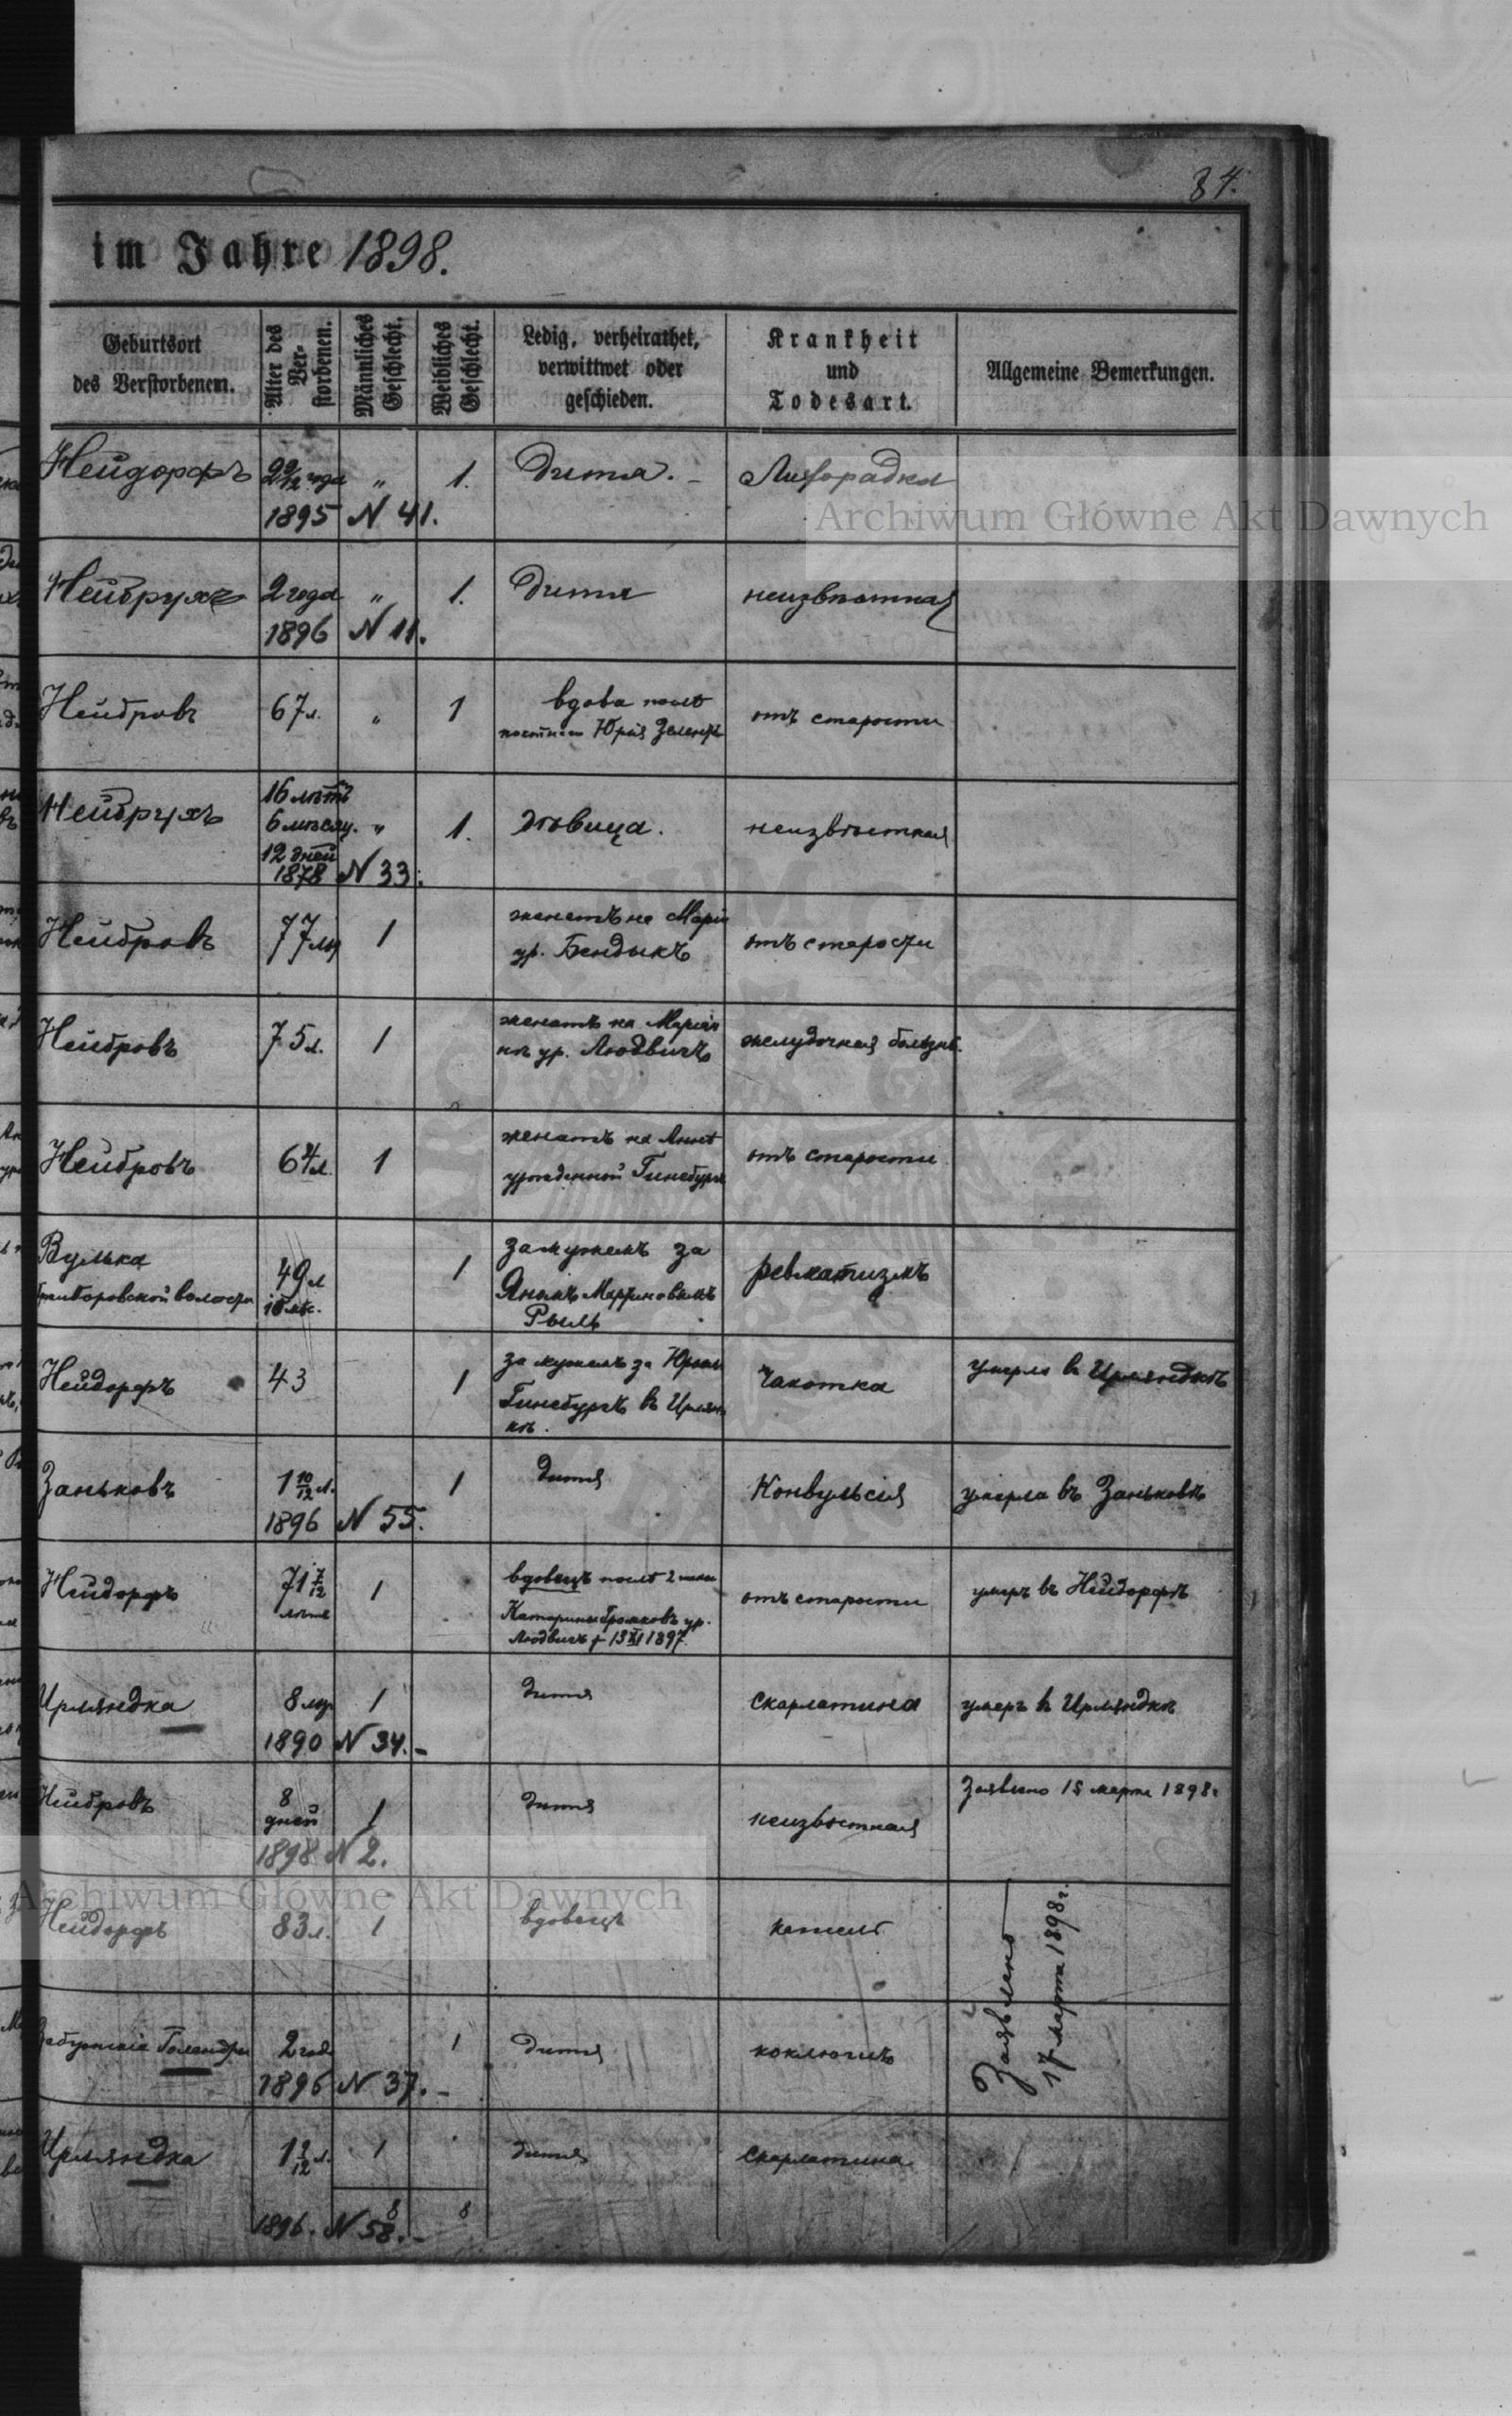 84.
im Jahre 1898.
Geburtsort des Verstorbenen.
Alter des Verstorbenen.
Männliches Geschlecht.
Weibliches Geschlecht.
Ledig, verheirathet, verwittwet oder geschieden.
Krankheit und Todesart.
Allgemeine Bemerkungen.
Нейдорфъ 2 9/12 года " 1. Дитя. Лихорадка
1895 N 41.
Нейбрухъ 2 года " 1. Дитя неизвѣстная
1896 N 11.
Нейбровъ 67 л. " 1 вдова послѣ
Юрія Зеленкъ отъ старости
Нейбрухъ 16 лѣтъ
6 мѣсяц. " 1. дѣвица. неизвѣстная
12 дней
1878 N 33.
Нейбровъ 77 лѣт 1 женатъ на Маріи
ур. Бендыкъ отъ старости
Нейбровъ 75 л. 1 женатъ на Маріан
нѣ ур. Людвигъ желудочная болѣзнь.
Нейбровъ 64 л. 1 женатъ на Аннѣ
урожденной Гинсбургъ отъ старости
Вулька 49 л 1 замужемъ за
волости 10 мѣс. Яномъ Мартиновымъ ревматизмъ
Рыль
Нейдорфъ 43 1 за мужемъ за Юріемъ
Гинсбургъ въ Ирлянд
кѣ. чахотка умерла въ Ирляндкѣ
Заньковъ 1 10/12 л. 1 дитя Конвульсія умерла въ Заньковѣ
1896 N 55.
Нейдорфъ 71 7/12 лѣтъ 1 вдовецъ послѣ 2 жены
Катарины Громковъ ур.
Людвигъ + 13 XI 1897. отъ старости умеръ въ Нейдорфѣ
Ирляндка 8 лѣт 1 дитя скарлатина умеръ въ Ирляндкѣ
1890 N 34.-
Нейбровъ 8 дней 1 дитя неизвѣстная Заявлено 15 марта 1898 г.
1898 N 2.
Нейдорфъ 83 л. 1 вдовецъ кашель
Заявлено
17 марта 1898 г.
Забужскіе Голендры 2 года 1 дитя коклюшъ
1896 N 37.-
Ирляндка 1 2/12 л. 1 дитя скарлатина
8 8
1896. N 58.-
Archiwum Główne Akt Dawnych
Archiwum Główne Akt Dawnych